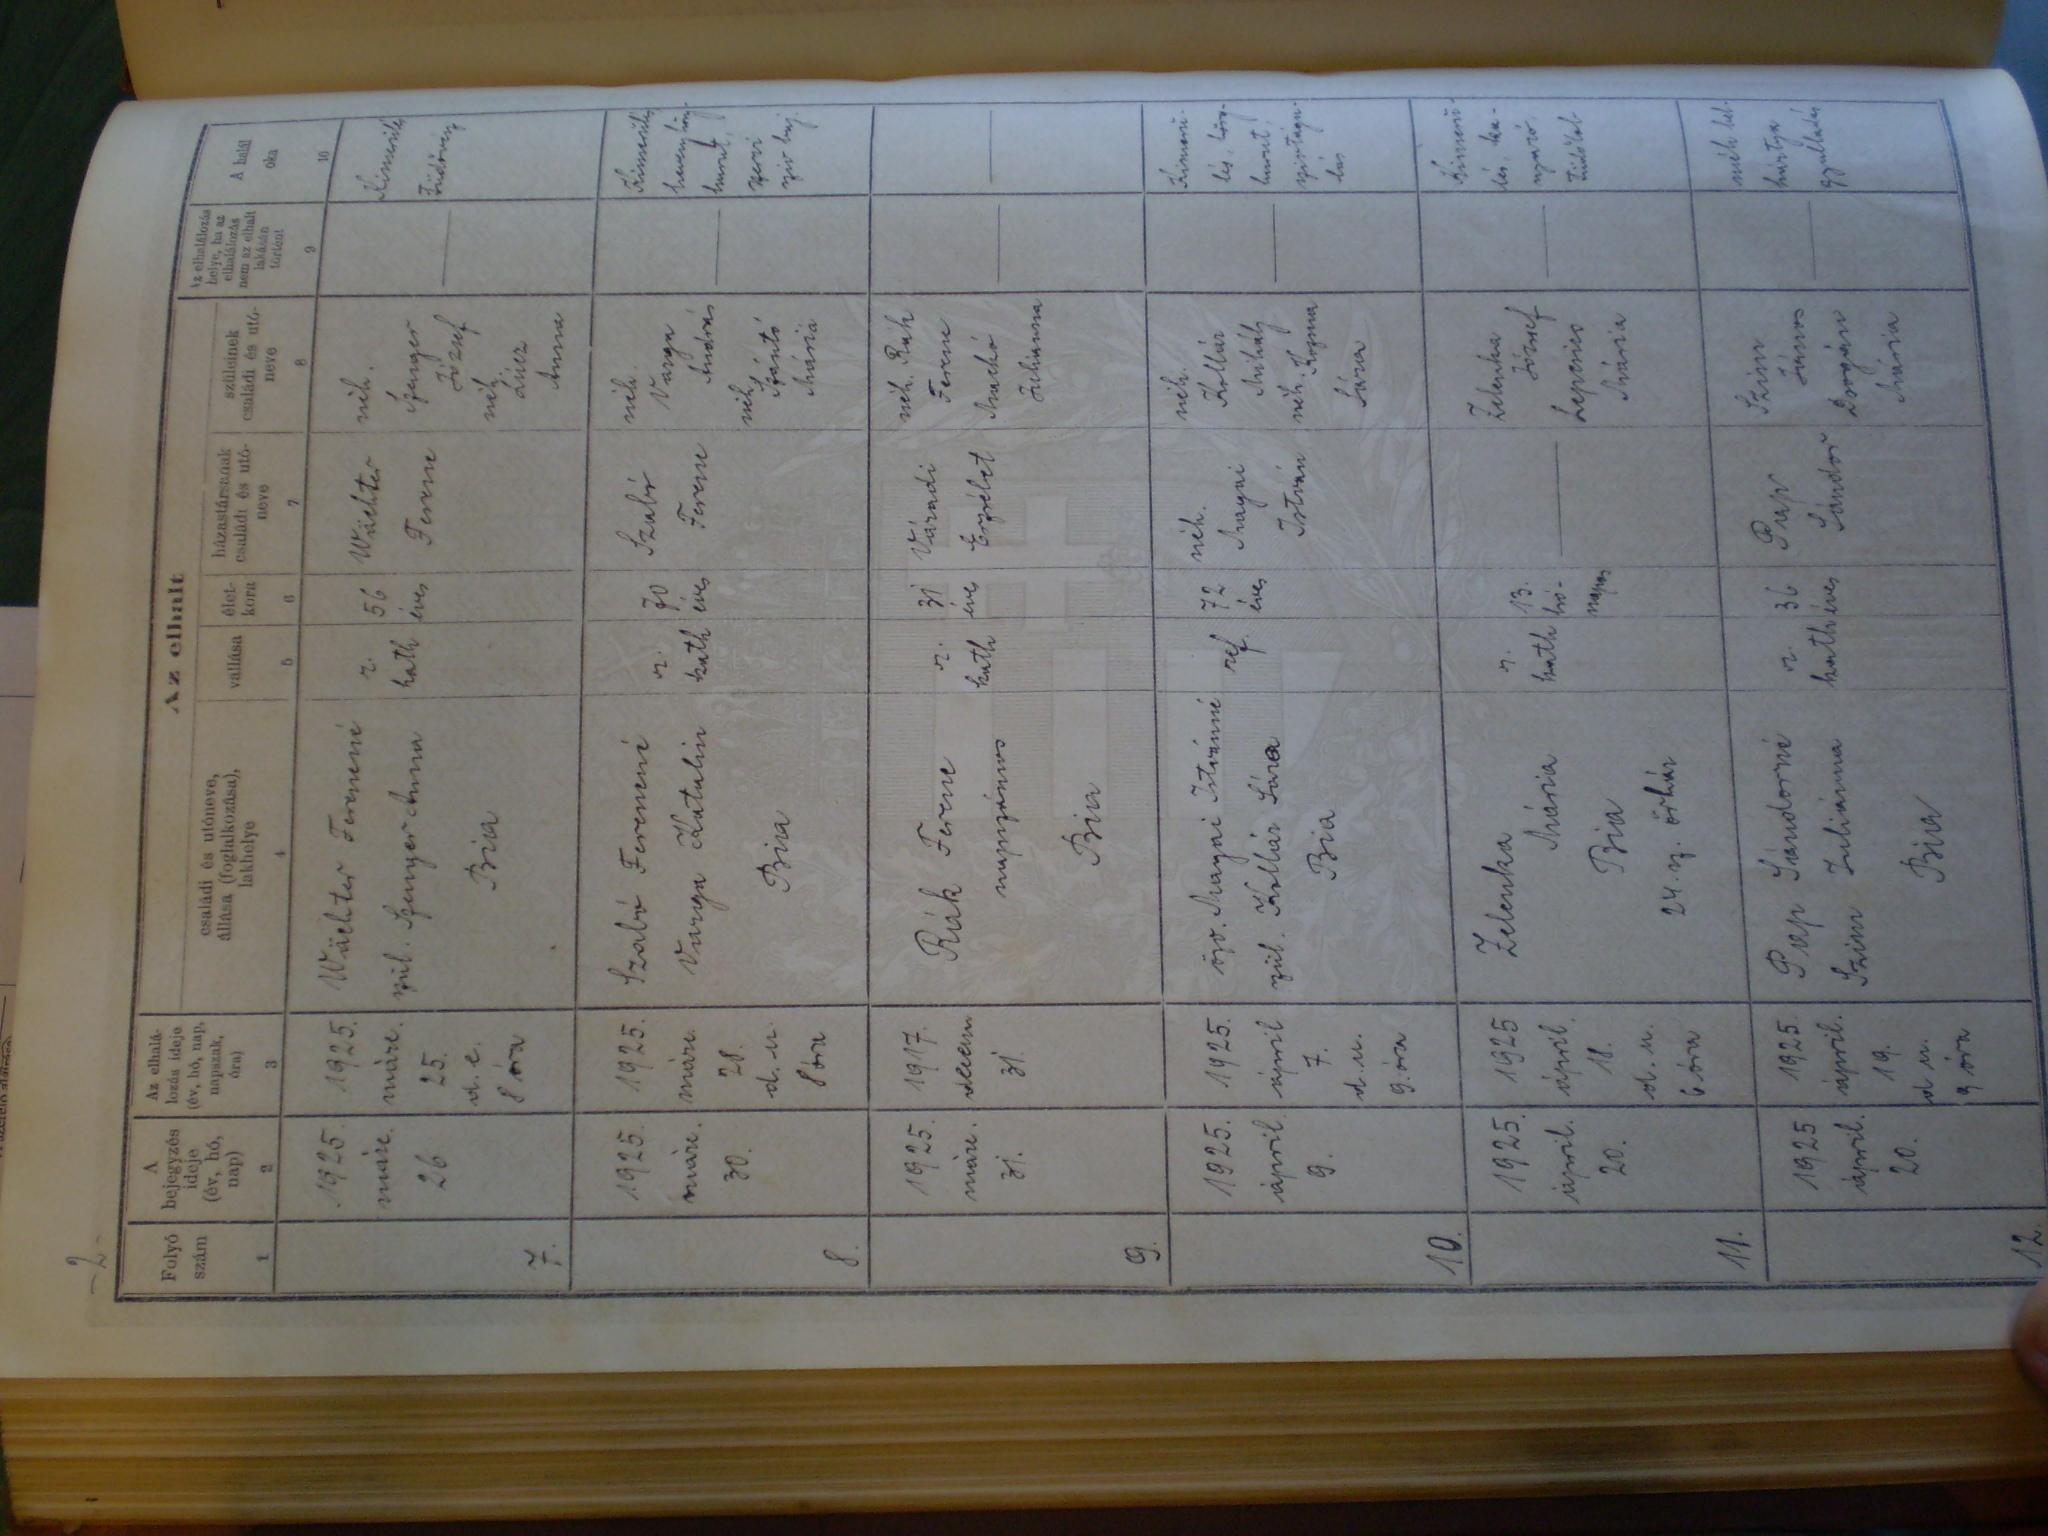 -2-
Az elhalt
Folyó
szám
A
bejegyzés
ideje
(év, hó,
nap)
Az elhalá-
lozás ideje
(év, hó, nap,
napszak,
óra)
családi és utóneve,
állása (foglalkozása),
lakhelye
vallása
élet-
kora
házastársának
családi és utó-
neve
szüleinek
családi és utó-
neve
Az elhalálozás
helye, ha az
elhalálozás
nem az elhalt
lakásán
történt
A halál
oka
1
2
3
4
5
6
7
8
9
10
7.
1925.
márc.
26
1925.
márc.
25.
d. e.
8 óra
Wächter Ferencné
szül. Spenger Anna
Bia
r.
kath
56
éves
Wächter
Ferenc
néh.
Spenger
József
néh.
Anna
Kimerülés
8.
1925.
márc.
30.
1925.
márc.
28.
d. u.
8 óra
Szabó Ferencné
Varga Katalin
Bia
r.
kath
70
éves
Szabó
Ferenc
néh.
Varga
András
néh.
Szántó
Mária
Kimerülés
hurut,
szervi
szív baj.
9.
1925.
márc.
31.
1917.
decem
31.
Ruák Ferenc
napszámos
Bia
r.
kath
31
éves
Váradi
Erzsébet
néh. Ruák
Ferenc
Machó
Julianna
10.
1925.
április
9.
1925.
április
7.
d. u.
9. óra
özv. Magai Istvánné
szül. Kollár Sára
Bia
ref.
72
éves
néh.
Magai
István
néh.
Kollár
Mihály
néh. Kozma
Sára
Kimerü-
lés, hörg-
hurut,
szívtágu-
lás
11.
1925.
április.
20.
1925
április.
18.
d. u.
6 óra
Zelenka
Mária
Bia
24. sz. őrház
r.
kath
13.
hó-
napos
Zelenka
József
Lepsics
Mária
Kimerü-
lés, ka-
nyaró,
tüdőlob-
12.
1925
április.
20.
1925.
április.
19.
d u.
9 óra
Pap Sándorné
Szim Julianna
Bia
r.
kath
36
éves
Pap
Sándor
Szim
János
Mária
méh bel-
hártya
gyulladás